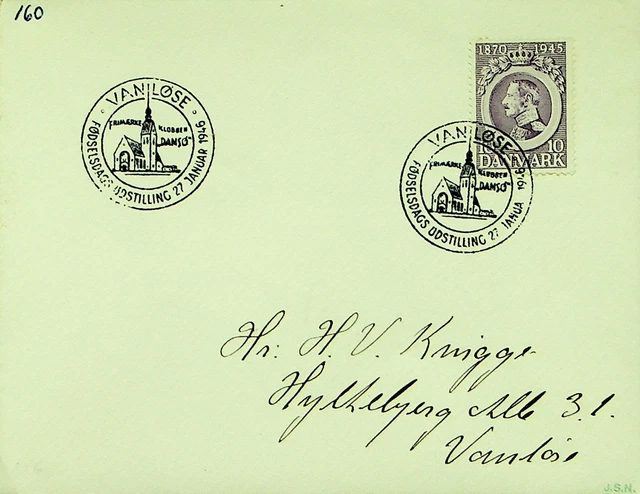 160
VANLØSE
FRIMÆRKE KLUBBEN
DANSØ
FØDSELSDAGS UDSTILLING 27 JANUAR 1946
1870 1945
10
DANMARK
VANLØSE
FRIMÆRKE KLUBBEN
DANSØ
FØDSELSDAGS UDSTILLING 27 JANUA 1946
Hr. H. V. Knigge
Hyltebjerg Alle 3.1.
Vanløse
J.S.N.